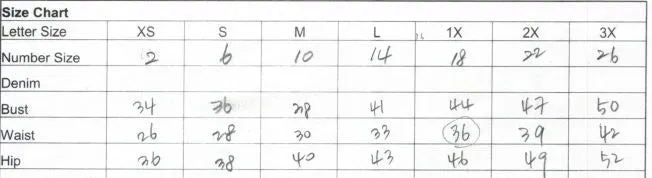 Size Chart
Letter Size XS S M L 1X 2X 3X
Number Size 2 6 10 14 18 22 26
Denim
Bust 34 36 38 41 44 47 50
Waist 26 28 30 33 36 39 42
Hip 36 38 40 43 46 49 52